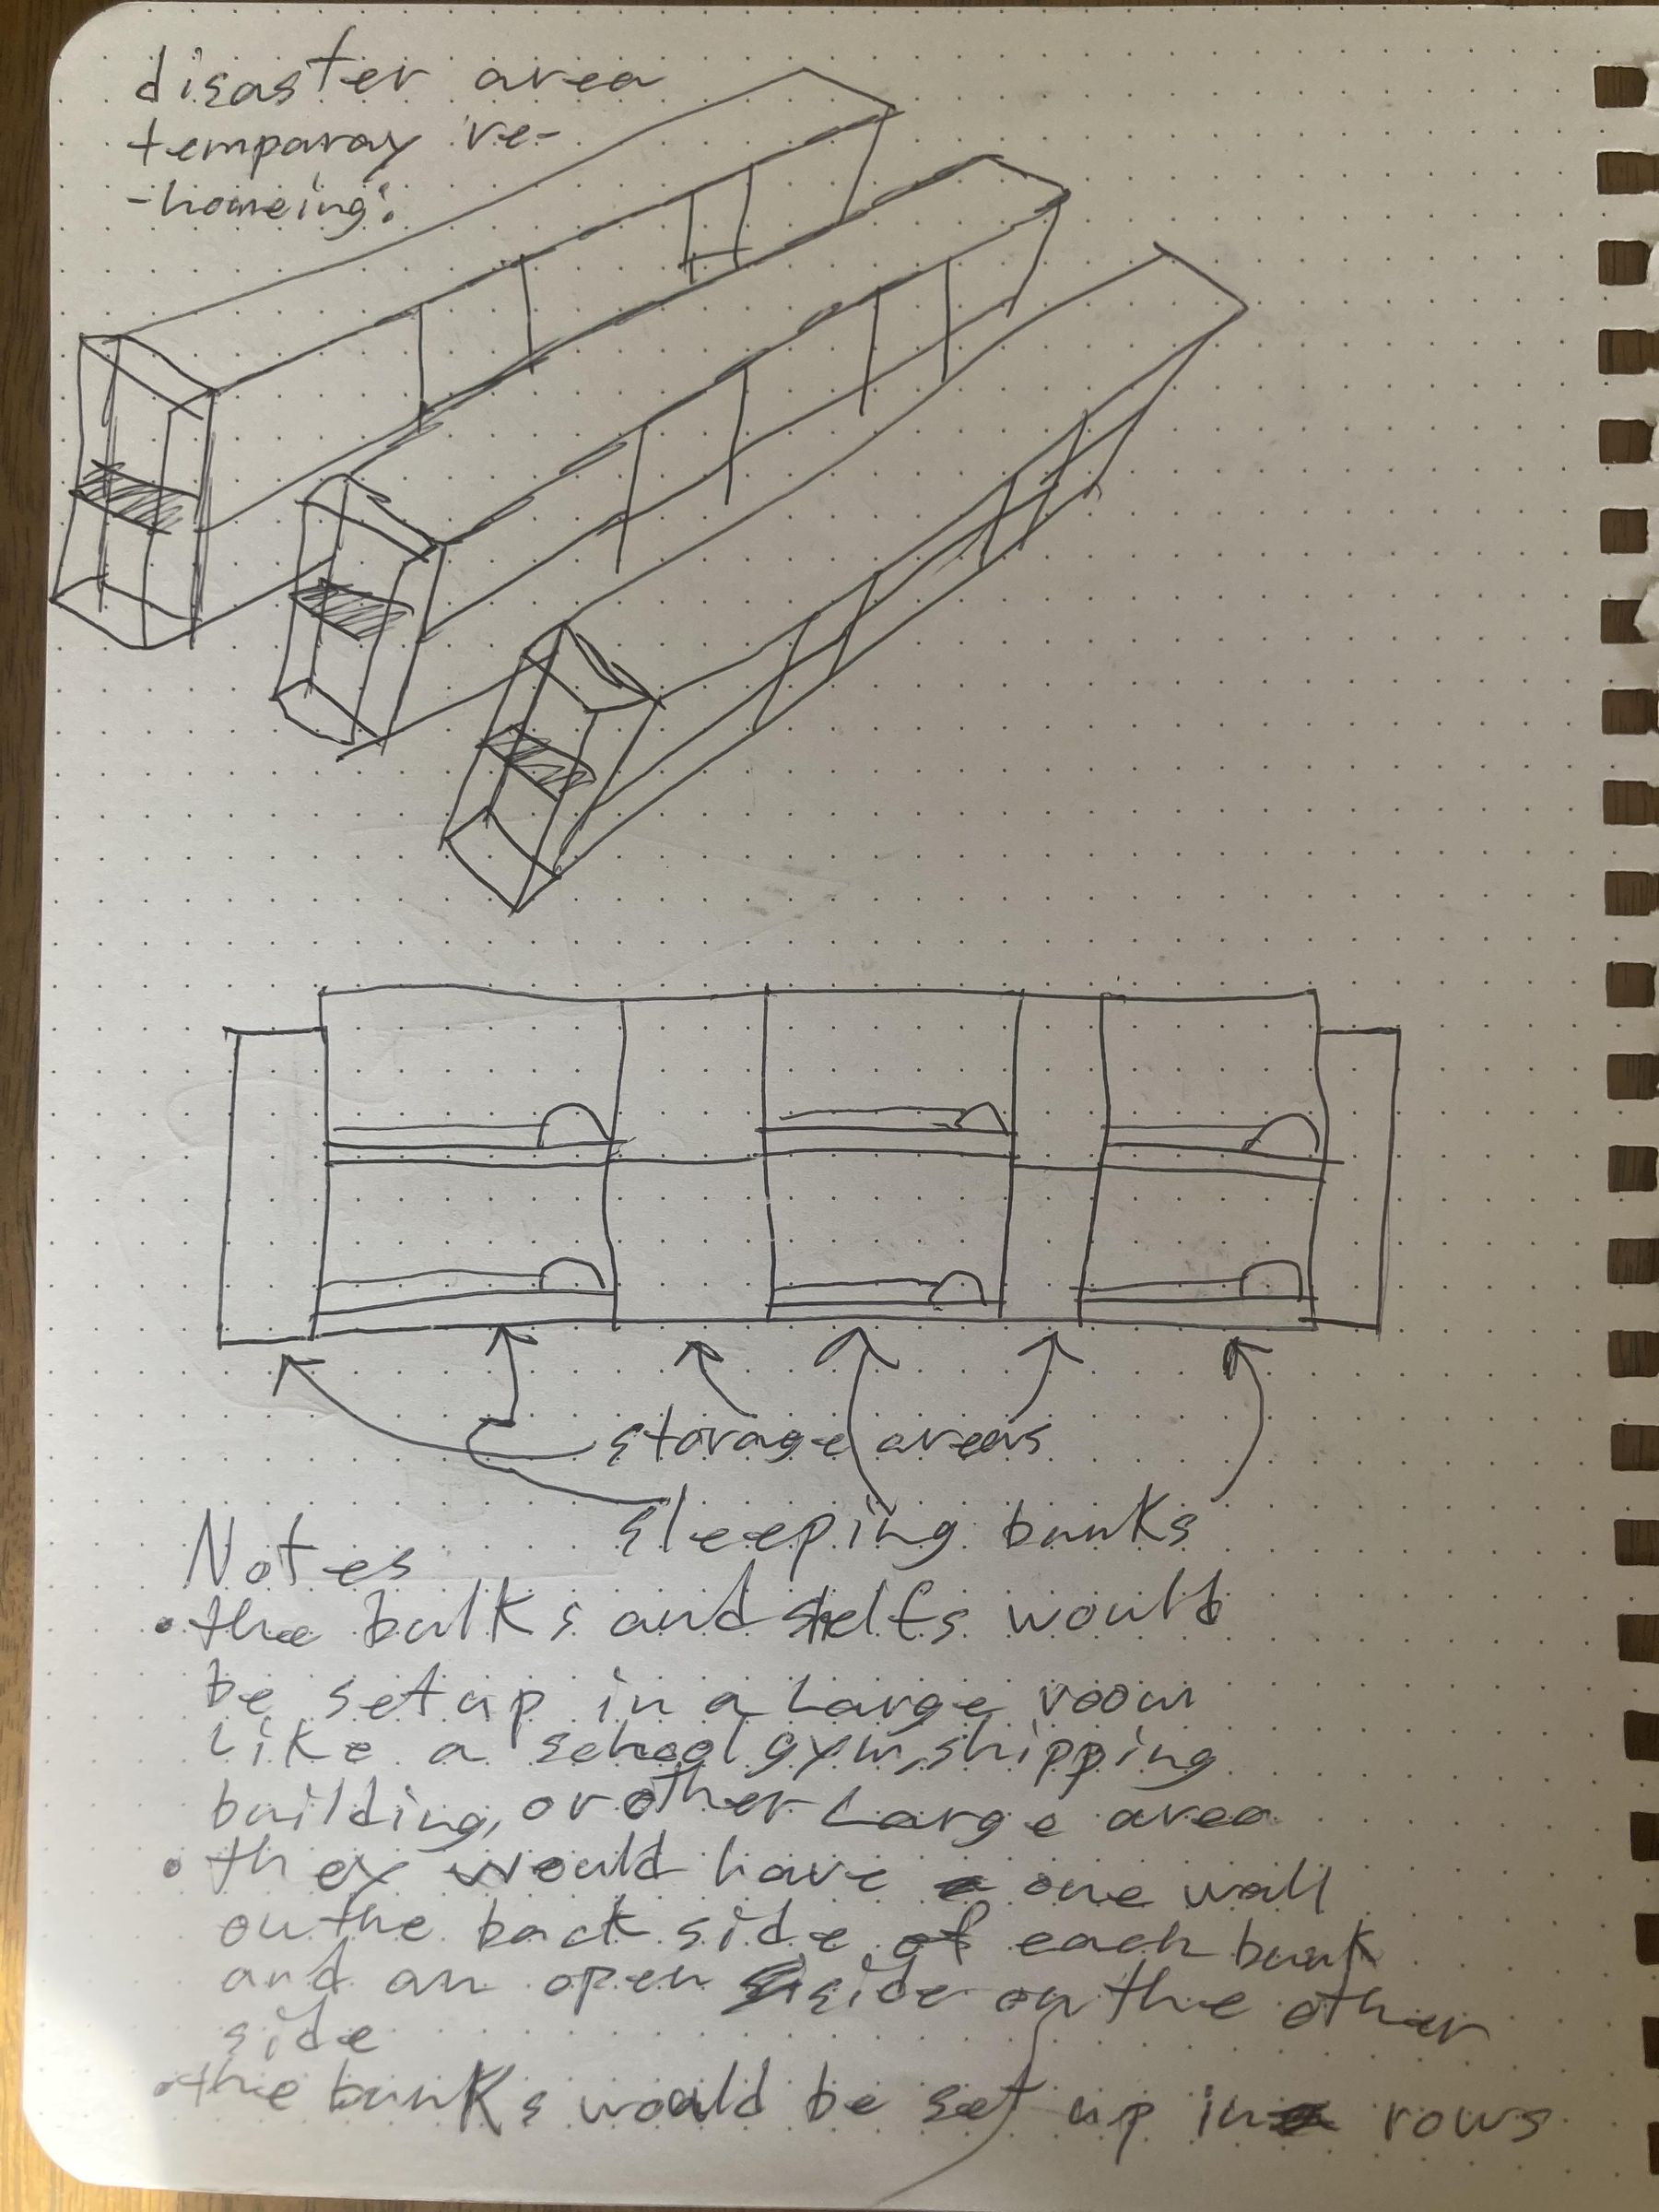 disaster area
temparay re-
-homeing:
storage areas
sleeping bunks
Notes
• the bulks and shelfs would
be set up in a large room
like a school gym, shipping
building, or other large area
• they would have one wall
on the back side of each bunk
and an open side on the other
side
• the bunks would be set up in rows